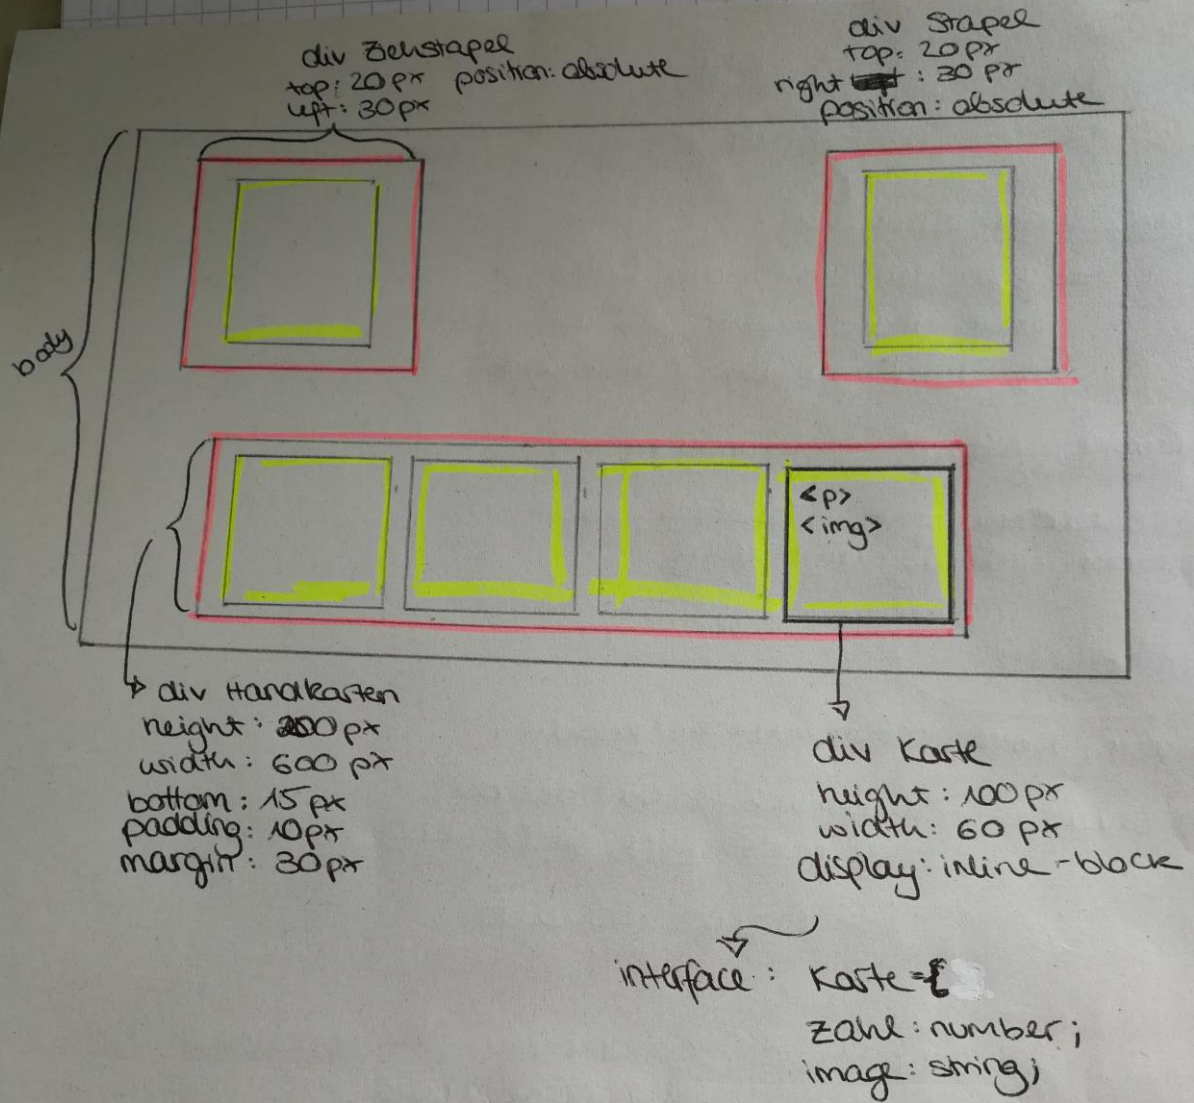 div Ziehstapel
top: 20px position: absolute
left: 30px
div Stapel
top: 20px
right : 30 px
position: absolute
body
<p>
<img>
div Handkarten
height: 200px
width: 600 px
bottom: 15px
padding: 10px
margin: 30px
div Karte
height: 100px
width: 60 px
display: inline-block
interface : Karte={
zahl: number;
image: string;